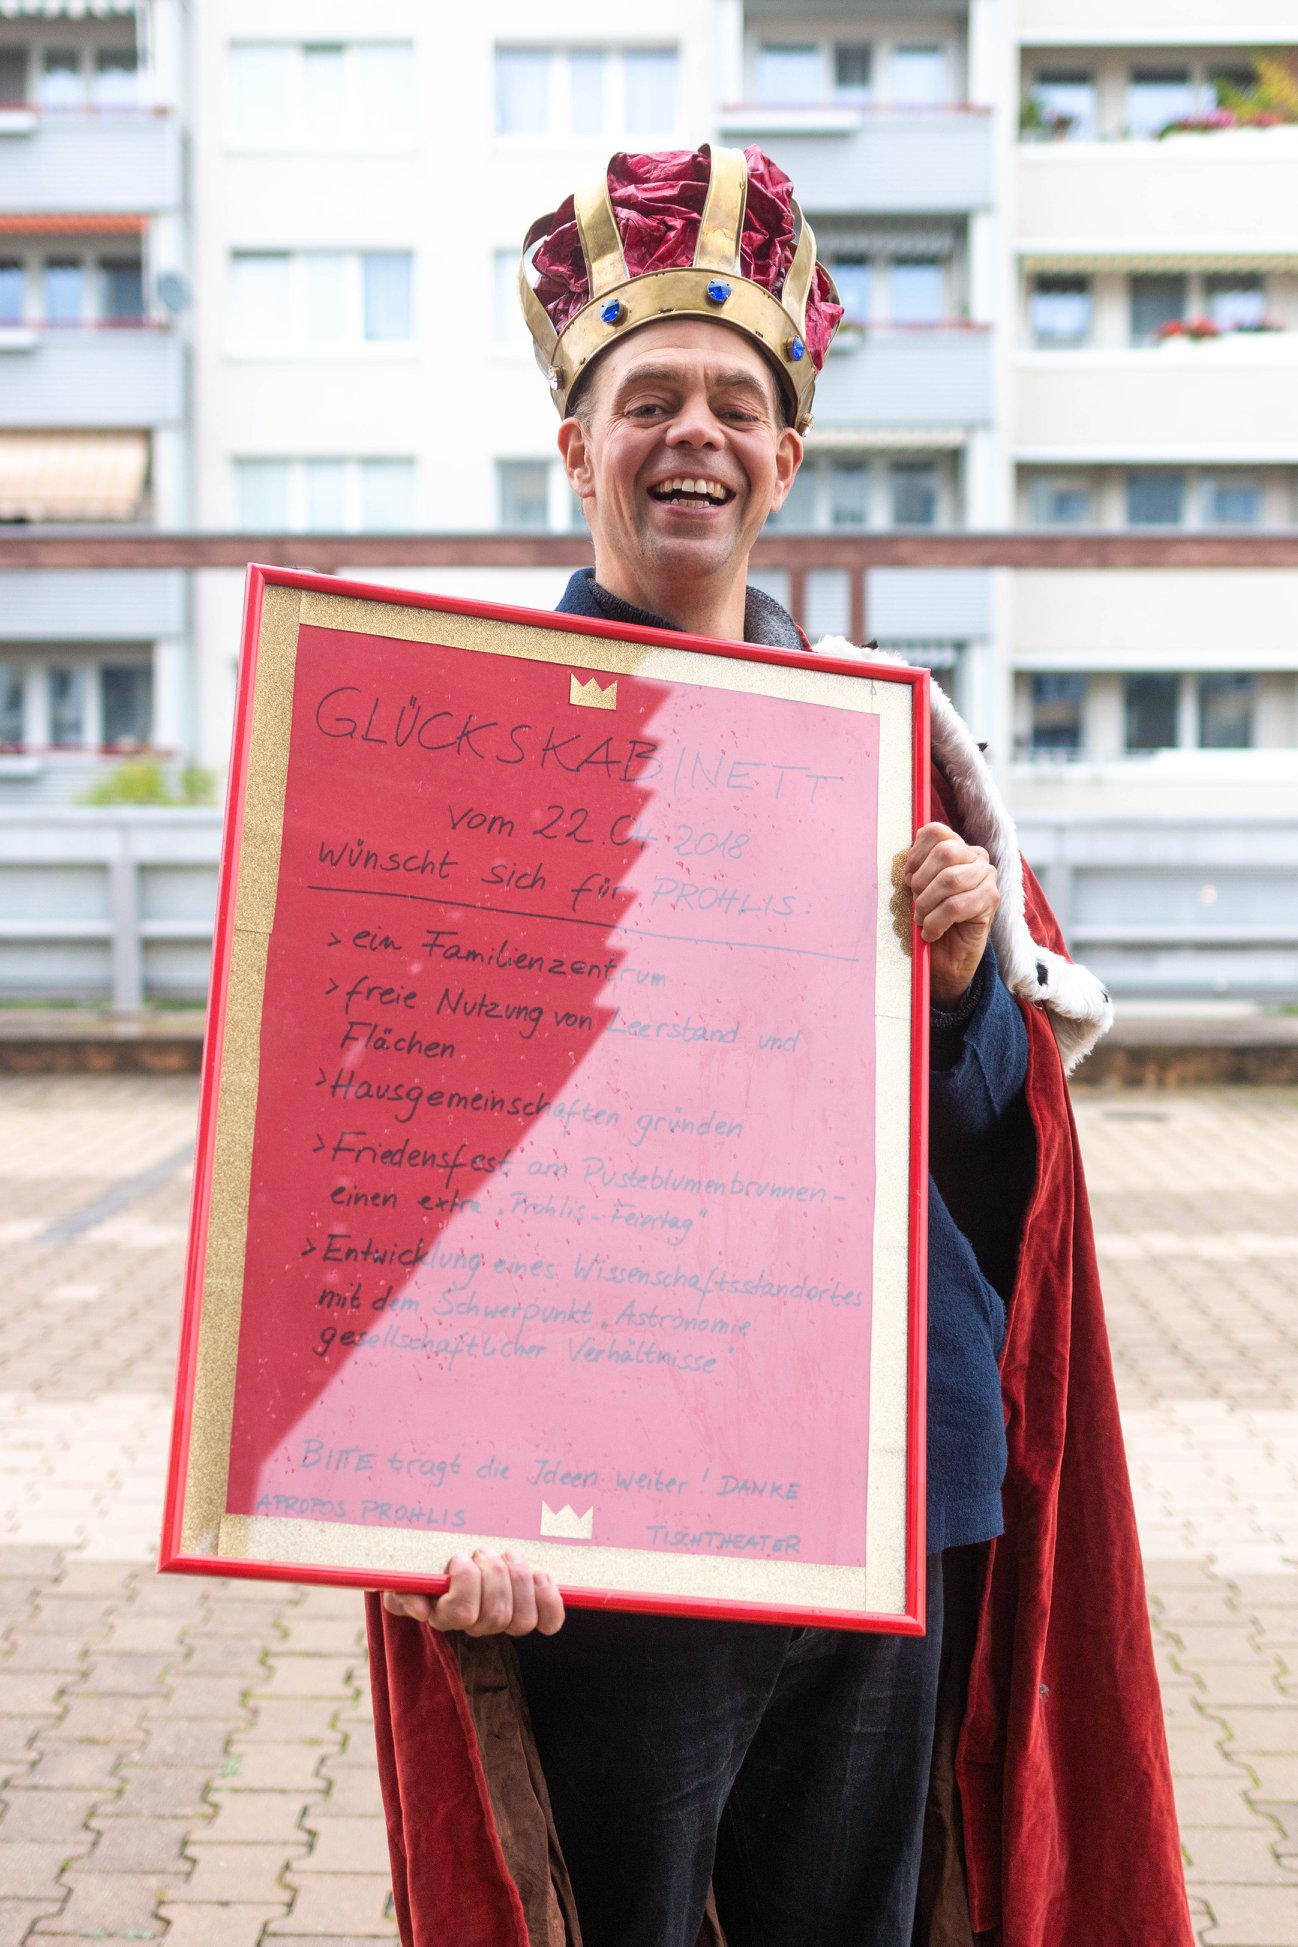 GLÜCKSKABINETT
vom 22.04.2018
wünscht sich für PROHLIS:
> ein Familienzentrum
> freie Nutzung von Leerstand und
Flächen
> Hausgemeinschaften gründen
> Friedensfest am Pusteblumenbrunnen-
einen extra „Prohlis-Feiertag"
> Entwicklung eines Wissenschaftsstandortes
mit dem Schwerpunkt „Astronomie
gesellschaftlicher Verhältnisse"
BITTE tragt die Ideen weiter! DANKE
APROPOS PROHLIS
TISCHTHEATER